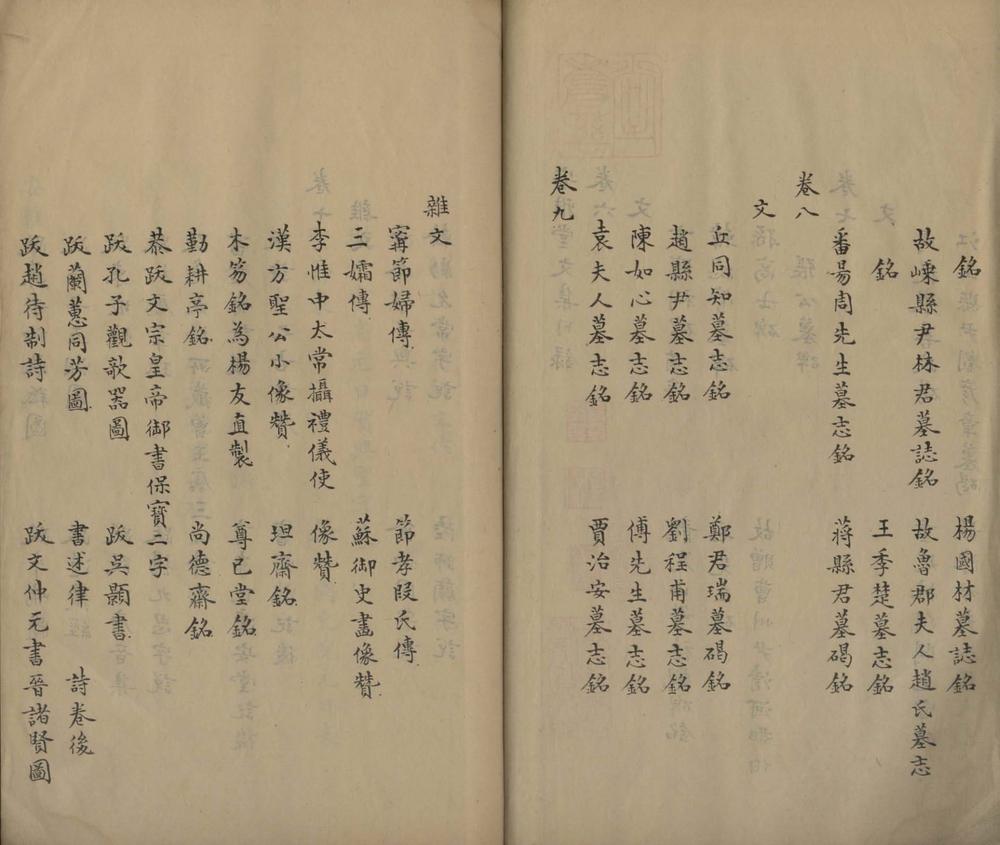 銘　楊國材墓誌銘
故嵊縣尹林君墓誌銘　故魯郡夫人趙氏墓志
銘　王季楚墓志銘
番昜周先生墓志銘　蔣縣君墓碣銘
卷八
文
丘同知墓志銘　鄭君瑞墓碣銘
趙縣尹墓志銘　劉程甫墓志銘
陳如心墓志銘　傅先生墓志銘
袁夫人墓志銘　賈治安墓志銘
卷九
雜文
甯節婦傳　節孝段氏傳
三孀傳　蘇御史畫像贊
李惟中太常攝禮儀使像贊
漢方聖公小像贊　坦齋銘
木笏銘為楊友直製　尊已堂銘
勤耕亭銘　尚德齋銘
恭跋文宗皇帝御書保寶二字
跋孔子觀歌器圖　跋吳顥書
跋蘭蕙同芳圖　書述律　詩卷後
跋趙待制詩　跋文仲元書晉諸賢圖